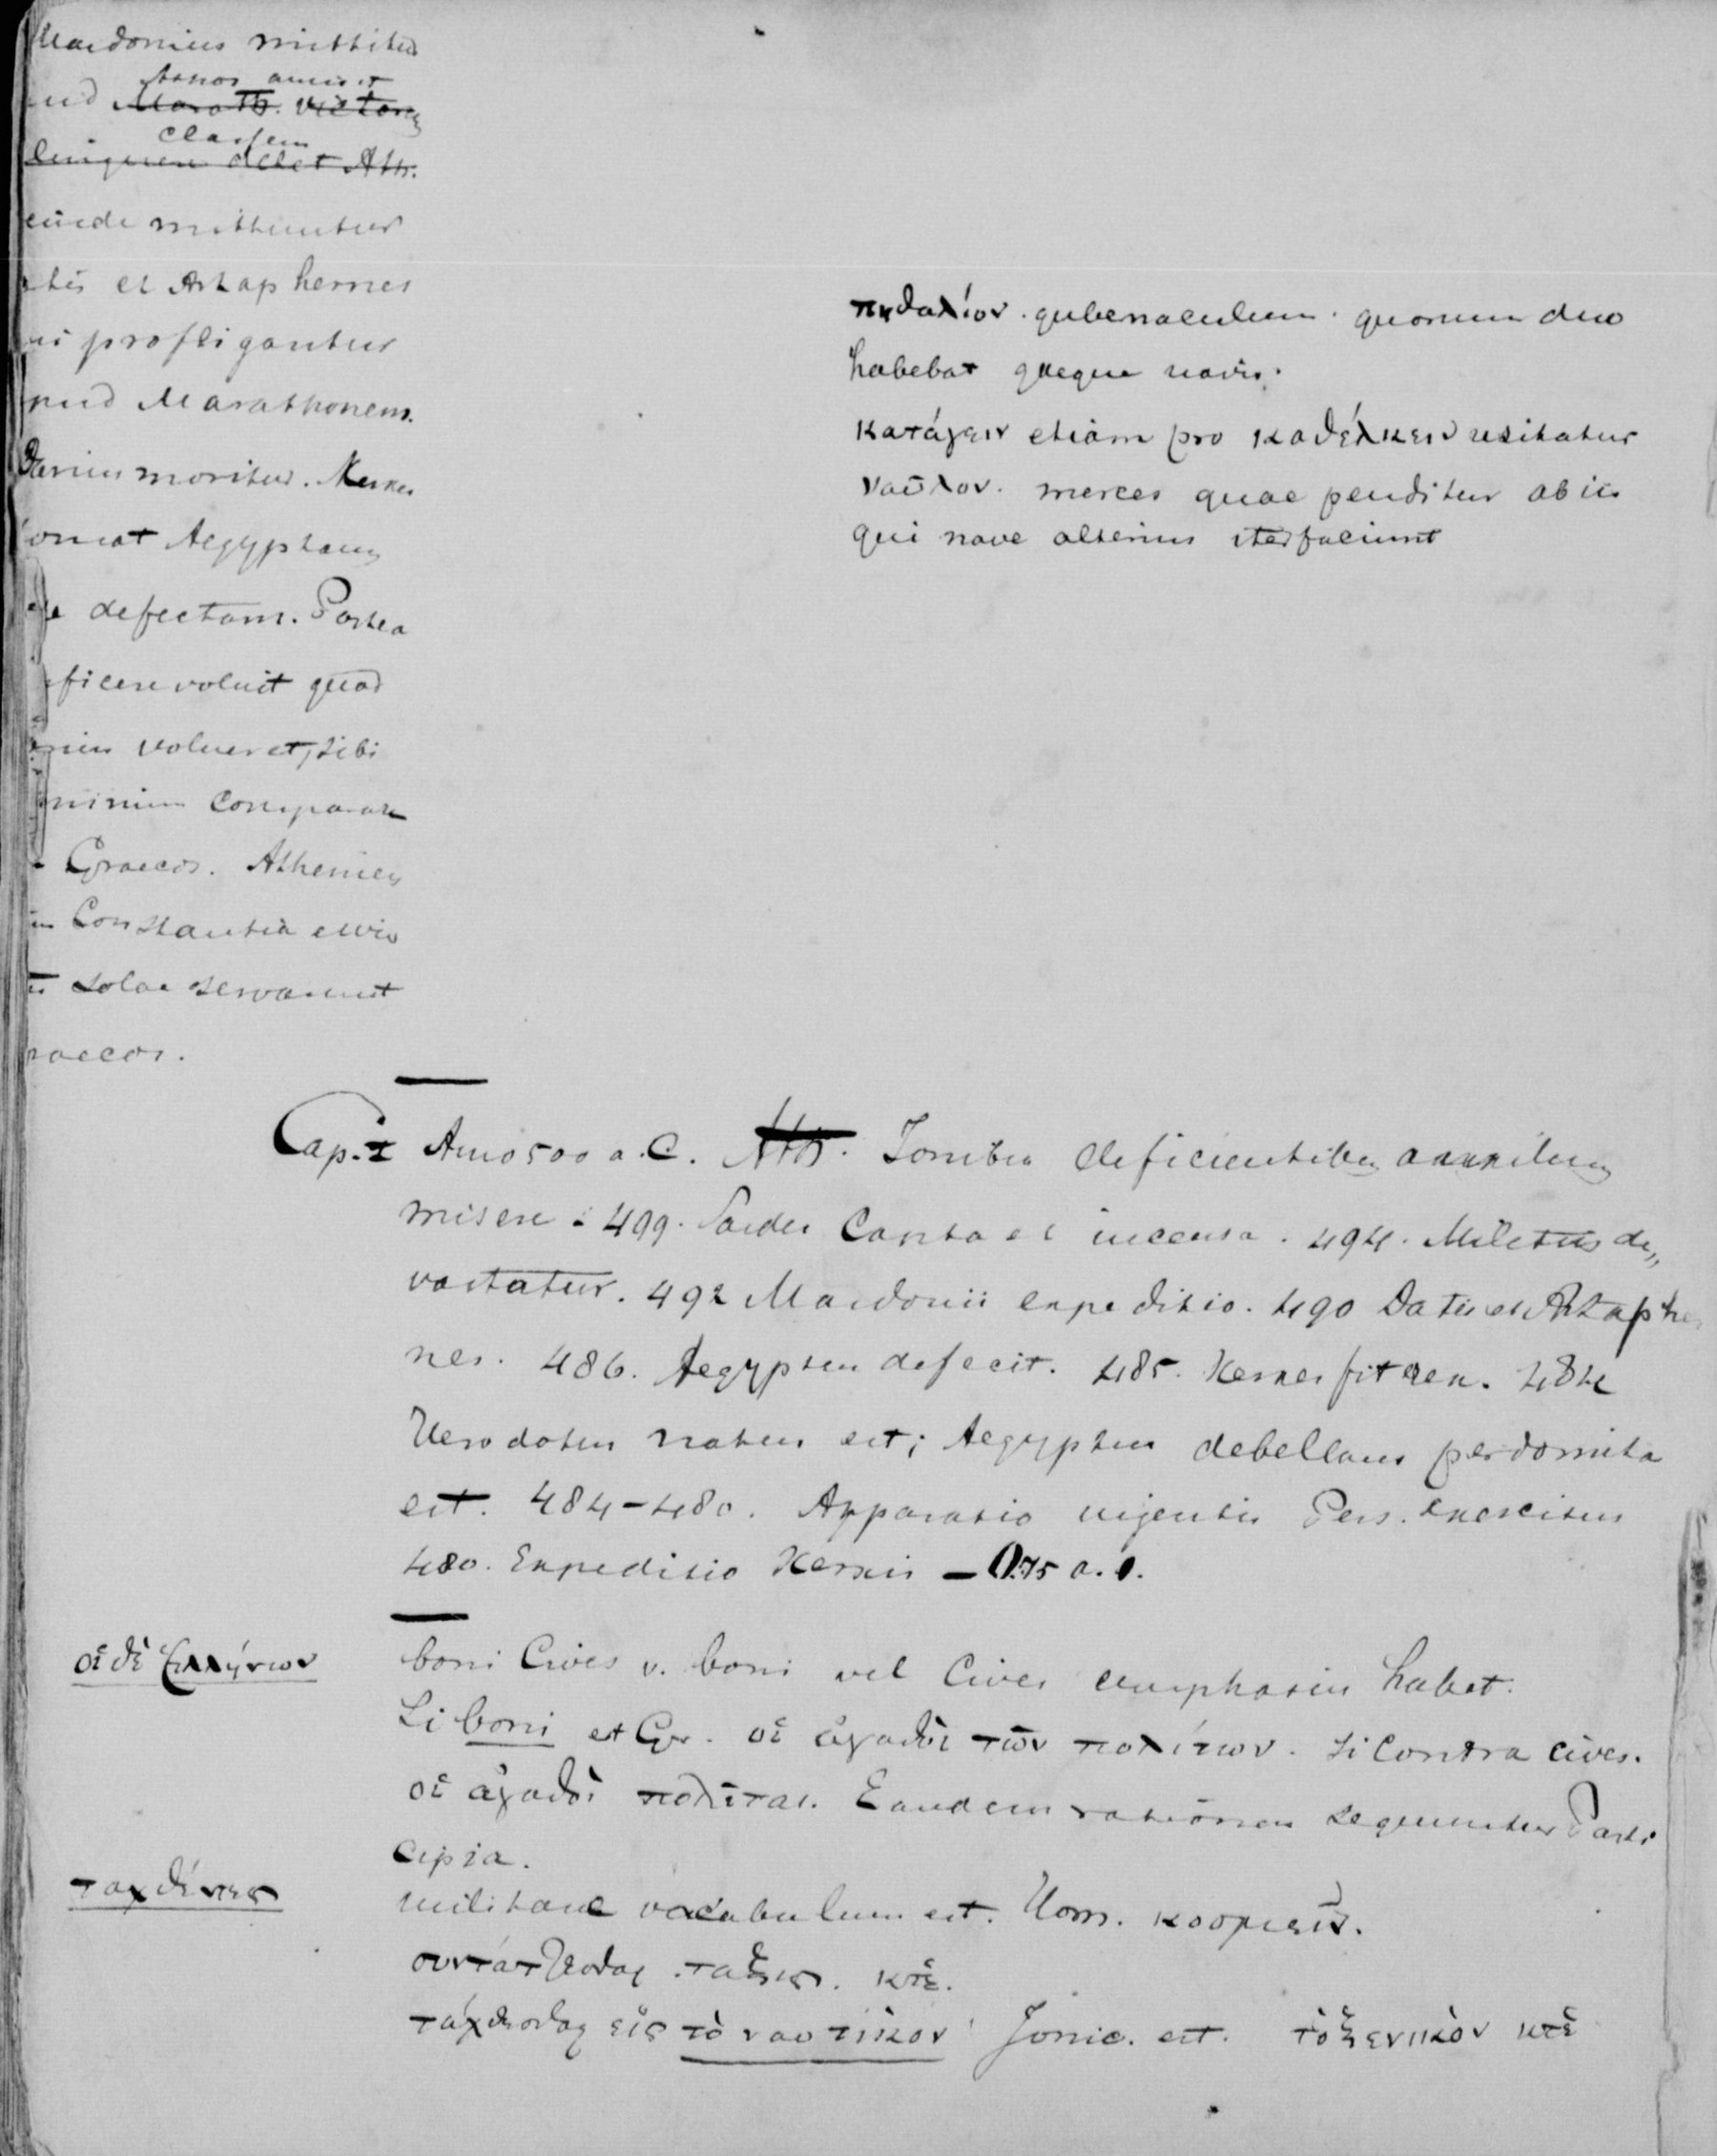 Mardonius mittitur
Athos amisit
pud Marath. victory
classem
linquere debet Ath.
einde mittuntur
atis et Artaphernes
ui profligantur
pud Marathonem.
Darius moritur. Xerxes
omat Aegyptum
defectam. Postea
ficere voluit quod
rius voluerat, sibi
minium comparare
Graecos. Athenien
Constantia
solae servarunt
raecos.
πηδαλίον. gubernaculum. quorum duo
habebat quaeque navis.
κατάγειν etiam pro καθέλκειν usitatur
ναῦλον. merces quae penditur ab iis
qui nave alterius iter faciunt
Cap. I Anno 500 a. C. Ath. Ionibus deficientibus auxilium
misere. 499. Sardes capta et incensa. 494. Miletus de„
vastatur. 492 Mardonii expeditio. 490 Datis et Artapher
nes. 486. Aegyptus defecit. 485. Xerxes fit rex. 484
Herodotus natus est; Aegyptus debellans perdomita
est. 484-480. Apparatio ingentis Pers. exercitus
480. Expeditio Xerxis – Ol. 75 a. 1.
οἱ δὲ Ἑλλήνων
boni Cives v. boni vel Cives emphasin habet.
Si boni est Gr. οἱ ἀγαθοὶ τῶν πολίτων. si contra cives.
οἱ ἀγαθοὶ πολῖται. Eandem rationem sequuntur Parti
cipia.
ταχθέντες
militare vocabulum est. Hom. κοσμεῖν.
συντάττεσθαι τάξις. κτἑ.
τάχθεσθαι εἰς τὸ ναυτικὸν Ionic. est. τὸ ξενικὸν κτἑ